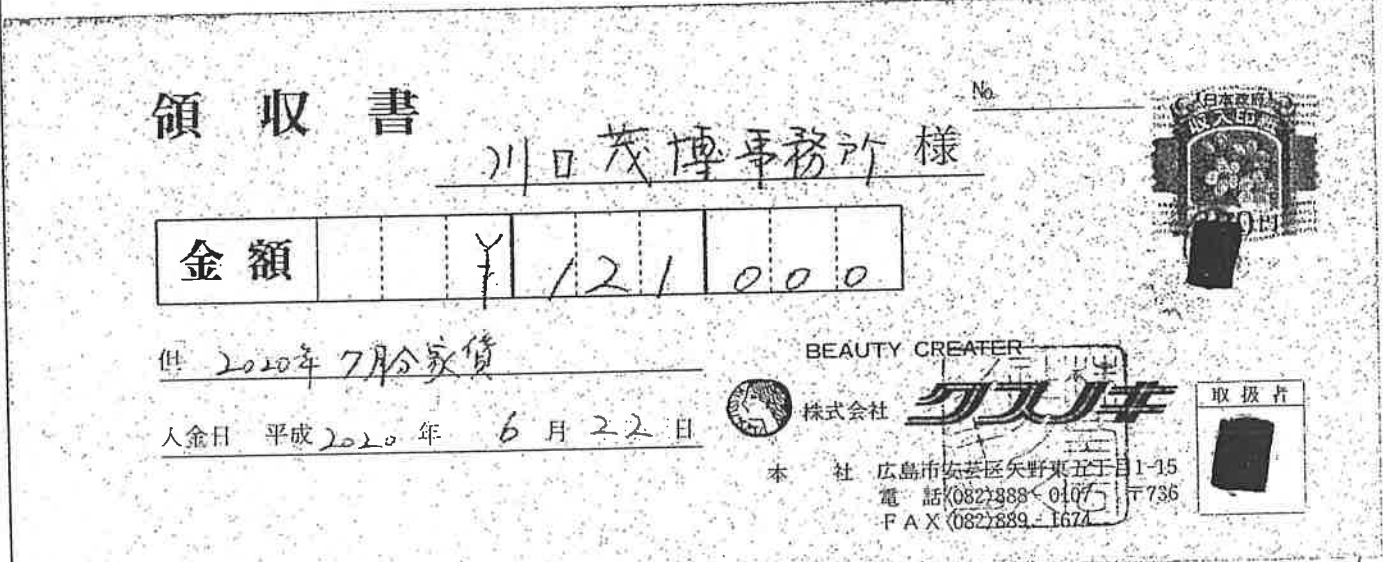 領収書
No.
川口茂博事務所 様
日本政府
収入印紙
金額 ¥121000
但 2020年7月分家賃
入金日 平成2020年 6月22日
BEAUTY CREATER
株式会社 クスノキ
取扱者
本社 広島市安芸区矢野東五丁目1-15
電話(082)888-0107 〒736
FAX(082)889-1674